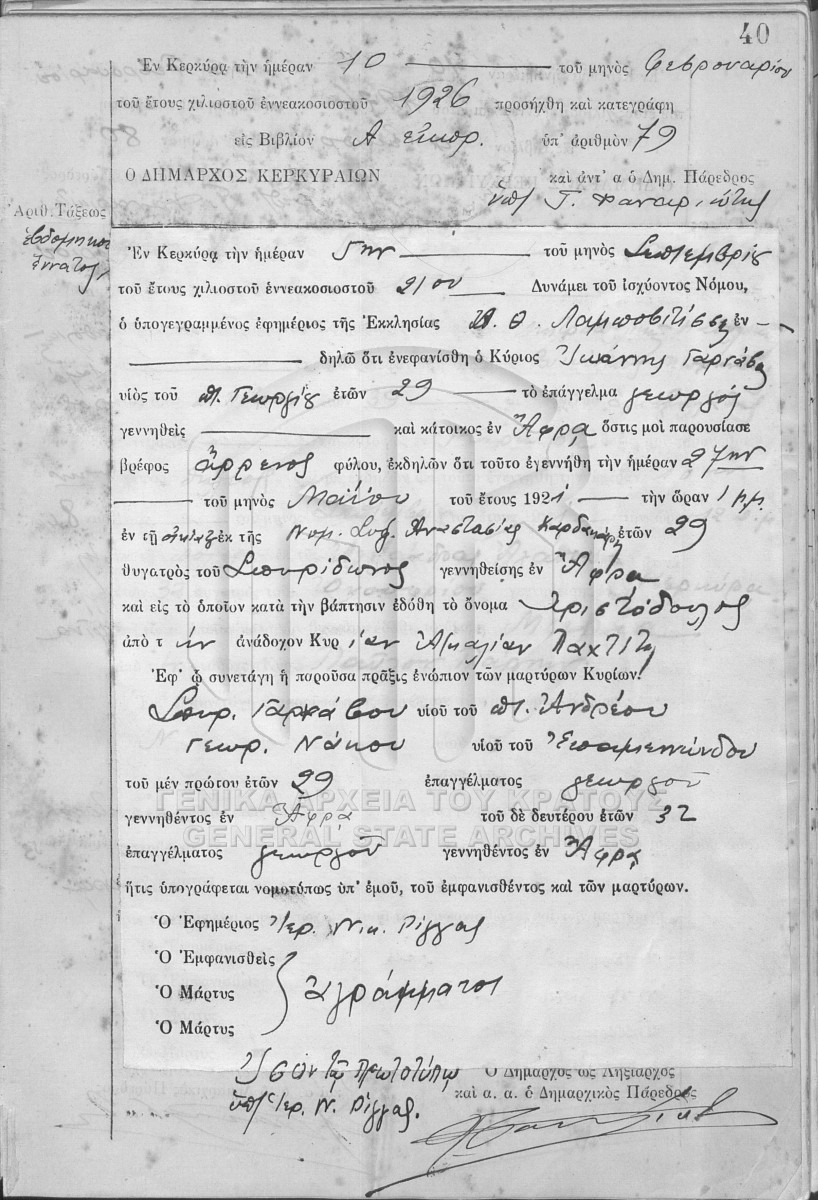 40
Ἐν Κερκύρᾳ τὴν ἡμέραν 10 τοῦ μηνὸς Φεβρουαρίου
τοῦ ἔτους χιλιοστοῦ ἐννεακοσιοστοῦ 1926 προσήχθη καὶ κατεγράφη
εἰς Βιβλίον Α ὑπ' ἀριθμὸν 79
Ο ΔΗΜΑΡΧΟΣ ΚΕΡΚΥΡΑΙΩΝ καὶ ἀντ' α ὁ Δημ. Πάρεδρος
Γ. Φαναριώτης
Ἀριθ. Τάξεως
ἑβδομηκοστ
ἔννατος
Ἐν Κερκύρᾳ τὴν ἡμέραν 5ην τοῦ μηνὸς Σεπτεμβρίου
τοῦ ἔτους χιλιοστοῦ ἐννεακοσιοστοῦ 21ου Δυνάμει τοῦ ἰσχύοντος Νόμου,
ὁ ὑπογεγραμμένος ἐφημέριος τῆς Ἐκκλησίας Υ. Θ. Λαμποβιτίσσης ἐν
δηλῶ ὅτι ἐνεφανίσθη ὁ Κύριος Ἰωάννης Γαρνάβης
υἱὸς τοῦ π. Γεωργίου ἐτῶν 29 τὸ ἐπάγγελμα γεωργός
γεννηθεὶς καὶ κάτοικος ἐν Ἄφρᾳ ὅστις μοὶ παρουσίασε
βρέφος ἄρρενος φύλου, ἐκδηλῶν ὅτι τοῦτο ἐγεννήθη τὴν ἡμέραν 27ην
τοῦ μηνὸς Μαΐου τοῦ ἔτους 1921 τὴν ὥραν 1 π.μ.
ἐν τῇ οἰκίᾳ ἐκ τῆς Νομ. Συζ. Αναστασίας ἐτῶν 29
θυγατρὸς τοῦ Σπυρίδωνος γεννηθείσης ἐν Ἄφρα
καὶ εἰς τὸ ὁποῖον κατὰ τὴν βάπτισιν ἐδόθη τὸ ὄνομα Χριστόδουλος
ἀπὸ τ ὴν ἀνάδοχον Κυρ ίαν Ἀμαλίαν Παχτίτη
Ἐφ' ᾧ συνετάγη ἡ παροῦσα πρᾶξις ἐνώπιον τῶν μαρτύρων Κυρίων.
Σπυρ. Γαρνάβου υἱοῦ τοῦ π. Ἀνδρέου
Γεωρ. Νάκου υἱοῦ τοῦ Ἐπαμεινώνδου
τοῦ μέν πρώτου ἐτῶν 29 ἐπαγγέλματος γεωργοῦ
ΓΕΝΙΚΑ ΑΡΧΕΙΑ ΤΟΥ ΚΡΑΤΟΥΣ
γεννηθέντος ἐν Ἄφρᾳ τοῦ δὲ δευτέρου ἐτῶν 32
GENERAL STATE ARCHIVES
ἐπαγγέλματος γεωργοῦ γεννηθέντος ἐν Ἄφρᾳ
ἥτις ὑπογράφεται νομοτύπως ὑπ' ἐμοῦ, τοῦ ἐμφανισθέντος καὶ τῶν μαρτύρων.
Ὁ Ἐφημέριος Ἱερ. Νικ. Ρίγγας
Ὁ Ἐμφανισθεὶς
Ὁ Μάρτυς Ἀγράμματοι
Ὁ Μάρτυς
Ἴσον τῷ πρωτοτύπῳ Ὁ Δήμαρχος ὡς Ληξίαρχος
Ἱερ. Ν. Ρίγγας. καὶ α. α. ὁ Δημαρχικὸς Πάρεδρος